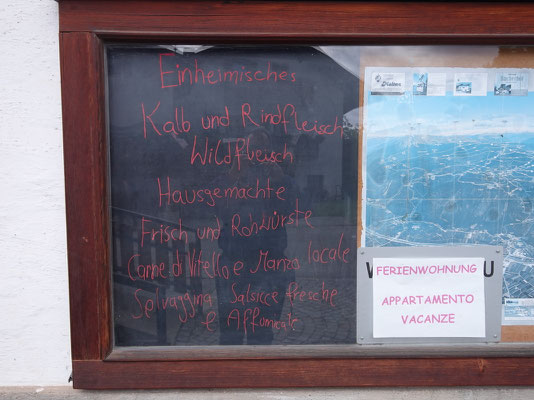 Einheimisches
Kalb und Rindfleisch
Wildfleisch
Hausgemachte
Frisch und Rohwürste
Carne di Vitello e Manzo locale
Selvaggina Salsicce fresche
e Affumicate
FERIENWOHNUNG
APPARTAMENTO
VACANZE